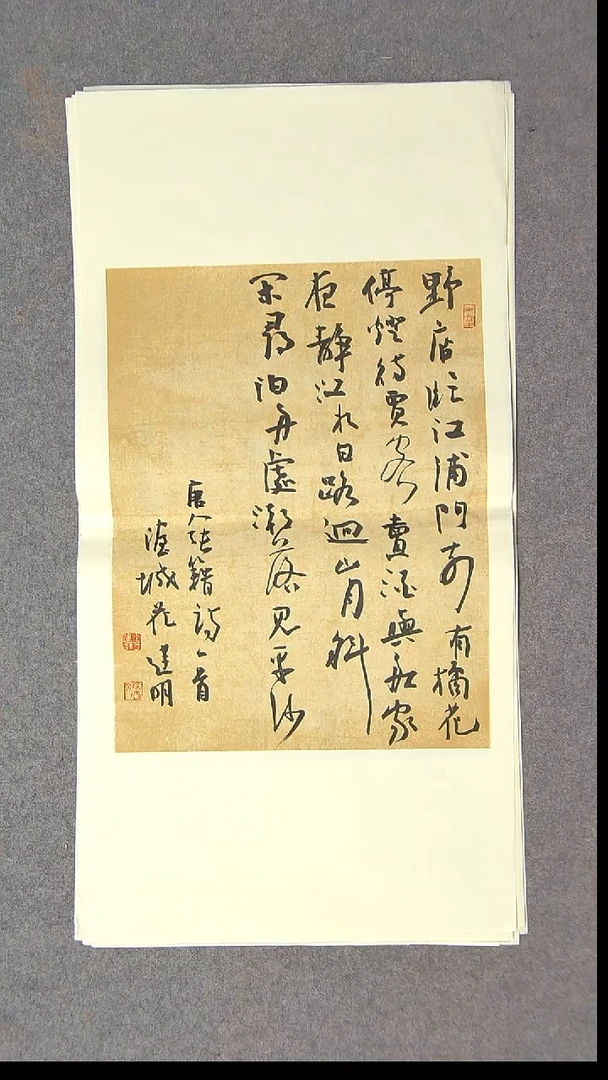 野店臨江浦門前有橘花
停燈待賈客賣酒與漁家
夜静江水白路迴山月斜
閑尋泊舟處潮落見平沙
唐人張籍詩一首
城建明